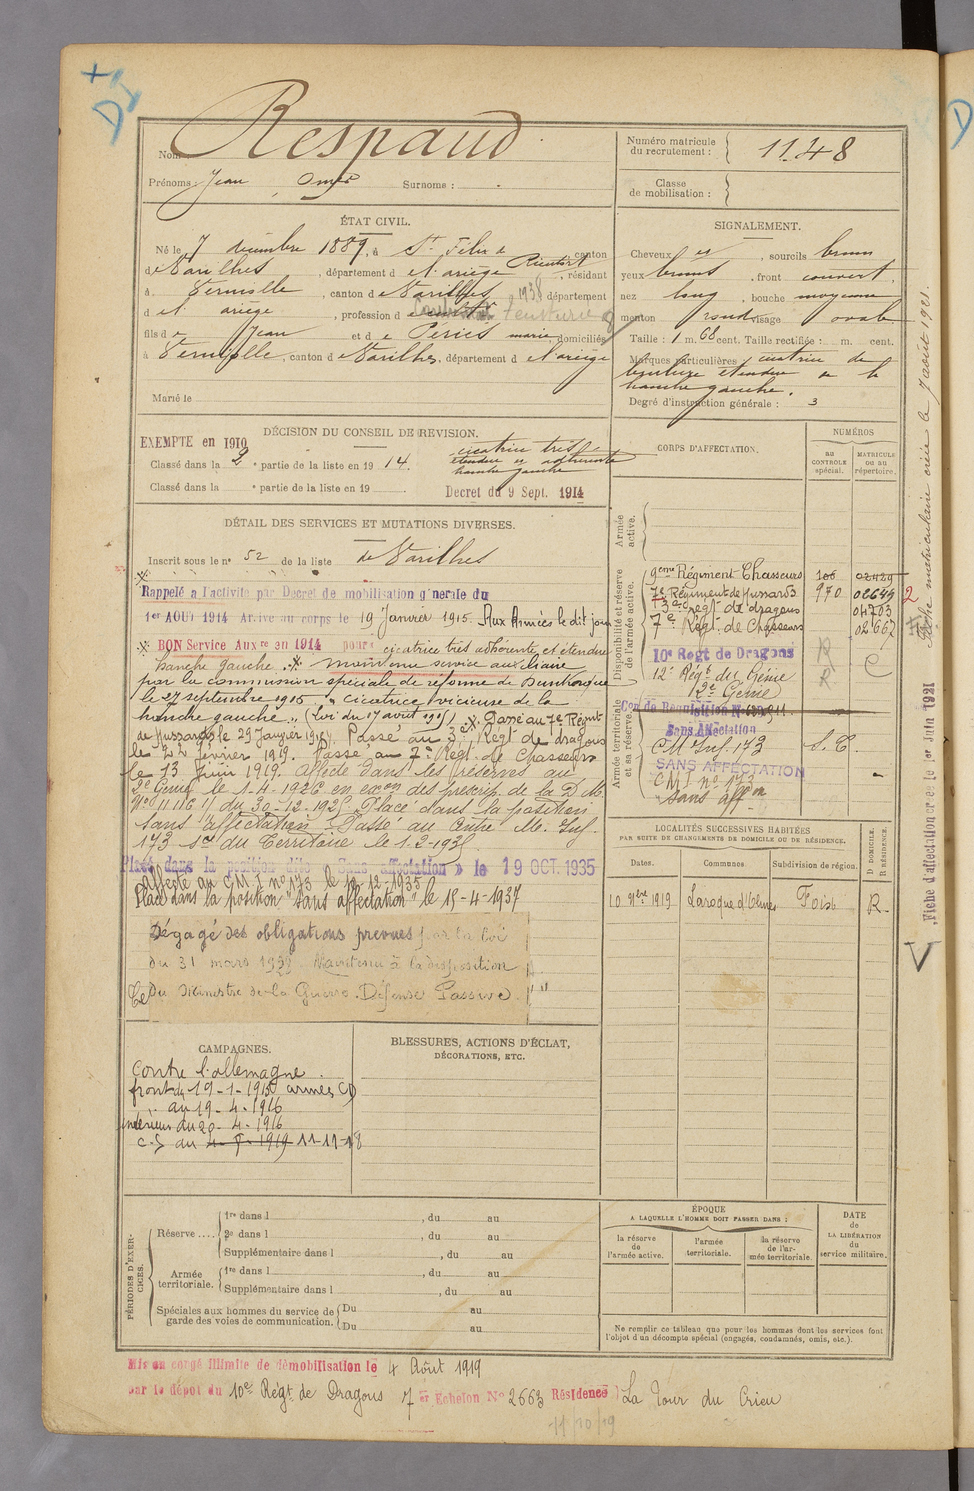 Respaud
Nom
Numéro matricule du recrutement : 1148
Prénoms : Jean Omer Surnome :
Classe de mobilisation :
ÉTAT CIVIL.
Né le 7 décembre 1889, à St Felix de Rieutort, canton
de Varilhes, département de l'ariège, résidant
à Verniolle, canton de Varilhes 1938 département
de l'ariège, profession de
fils de Jean et de Périés marie domiciliés
à Verniolle, canton de Varilhes, département de l'ariège
Marié le
SIGNALEMENT.
Cheveux, sourcils bruns
yeux bruns, front couvert
nez long, bouche moyenne
menton rond visage ovale
Taille : 1 m. 68 cent. Taille rectifiée : m. cent.
Marques particulières cicatrice de
brulure etendue a la
hanche gauche.
Degré d'instruction générale : 3
DÉCISION DU CONSEIL DE REVISION.
EXEMPTE en 1910
Classé dans la 2e partie de la liste en 1914.
cicatrice très
étendue et adhérente
hanche gauche
Classé dans la e partie de la liste en 19
Decret du 9 Sept. 1914
DÉTAIL DES SERVICES ET MUTATIONS DIVERSES.
Inscrit sous le n° 52 de la liste de Varilhes
Rappelé a l'activité par Decret de mobilisation générale du
1er AOUT 1914 Arrivé au corps le 19 Janvier 1915. Aux Armées le dit jour
BON Service Auxre en 1914 pour cicatrice très adhérente et étendue
hanche gauche. maintenu service auxiliaire
par la commission spéciale de réforme de Dunkerque
le 27 septembre 1915 "cicatrice vicieuse de la
hanche gauche" (loi du 17 août 1915). Passé au 7e Régiment
de hussards le 29 Janvier 191 Passé au 3e Régt de dragons
le 22 février 1919. Passé au 7e Régt de Chasseurs
le 13 Juin 1919. Affecté dans les réserves au
2e Génie le 1-4-1926 en exon des prescrip. de la D.M.
du 30-12-1925. Placé dans la position
sans affectation Passé au Centre M. Inf.
173 du Territoire le 1.2-193
Placé dans la position dite « Sans affectation » le 19 OCT. 1935
Affecté au C M I n° 173 le 12-1935
Placé dans la position "sans affectation" le 15-4-1937
Dégagé des obligations prévues par la loi
du 31 mars 1928 Maintenu à la disposition
Du Ministre de la Guerre. Défense Passive
CORPS D'AFFECTATION.
NUMÉROS
au CONTROLE spécial.
MATRICULE ou au répertoire.
Armée active.
Disponibilité et réserve de l'armée active.
9eme Régiment Chasseurs 106 02429
7e Régiment de Hussards. 970 02649 2
3e Régt de dragons 04703
7e Régt de Chasseurs 02667
10e Regt de Dragons
12e Régt du Génie
2e Genie
Armée territoriale et sa réserve.
Con de Réquisition N°
Sans Affectation
CM Inf. 173 S.C.
SANS AFFECTATION
CMI n° 173
Sans affon
LOCALITÉS SUCCESSIVES HABITÉES
PAR SUITE DE CHANGEMENTS DE DOMICILE OU DE RÉSIDENCE.
Dates. Communes. Subdivision de région. D DOMICILE. R RÉSIDENCE.
10 9bre 1919 Laroque d'Olmes Foix R.
CAMPAGNES.
Contre l'allemagne.
front du 19-1-1915 armées CD
au 19-4-1916
intérieur du 20-4-1916
11-11-18
BLESSURES, ACTIONS D'ÉCLAT, DÉCORATIONS, ETC.
PÉRIODES D'EXERCICES.
Réserve .... 1re dans l, du au
2e dans l, du au
Supplémentaire dans l, du au
Armée territoriale. 1re dans l, du au
Supplémentaire dans l, du au
Spéciales aux hommes du service de garde des voies de communication. Du au
Du au
ÉPOQUE
A LAQUELLE L'HOMME DOIT PASSER DANS :
la réserve de l'armée active.
l'armée territoriale.
la réserve de l'armée territoriale.
DATE de LA LIBÉRATION du service militaire.
Ne remplir ce tableau que pour les hommes dont les services font
l'objet d'un décompte spécial (engagés, condamnés, omis, etc.).
Mis en congé illimité de démobilisation le 4 Août 1919
par le dépôt du 10e Régt. de Dragons 7 er Echelon N° 2663 Résidence La Tour du Crieu
11/10/19
Fiche matriculaire créée le 7 août 1921.
Fiche d'affectation créée le 1er Juin 1921